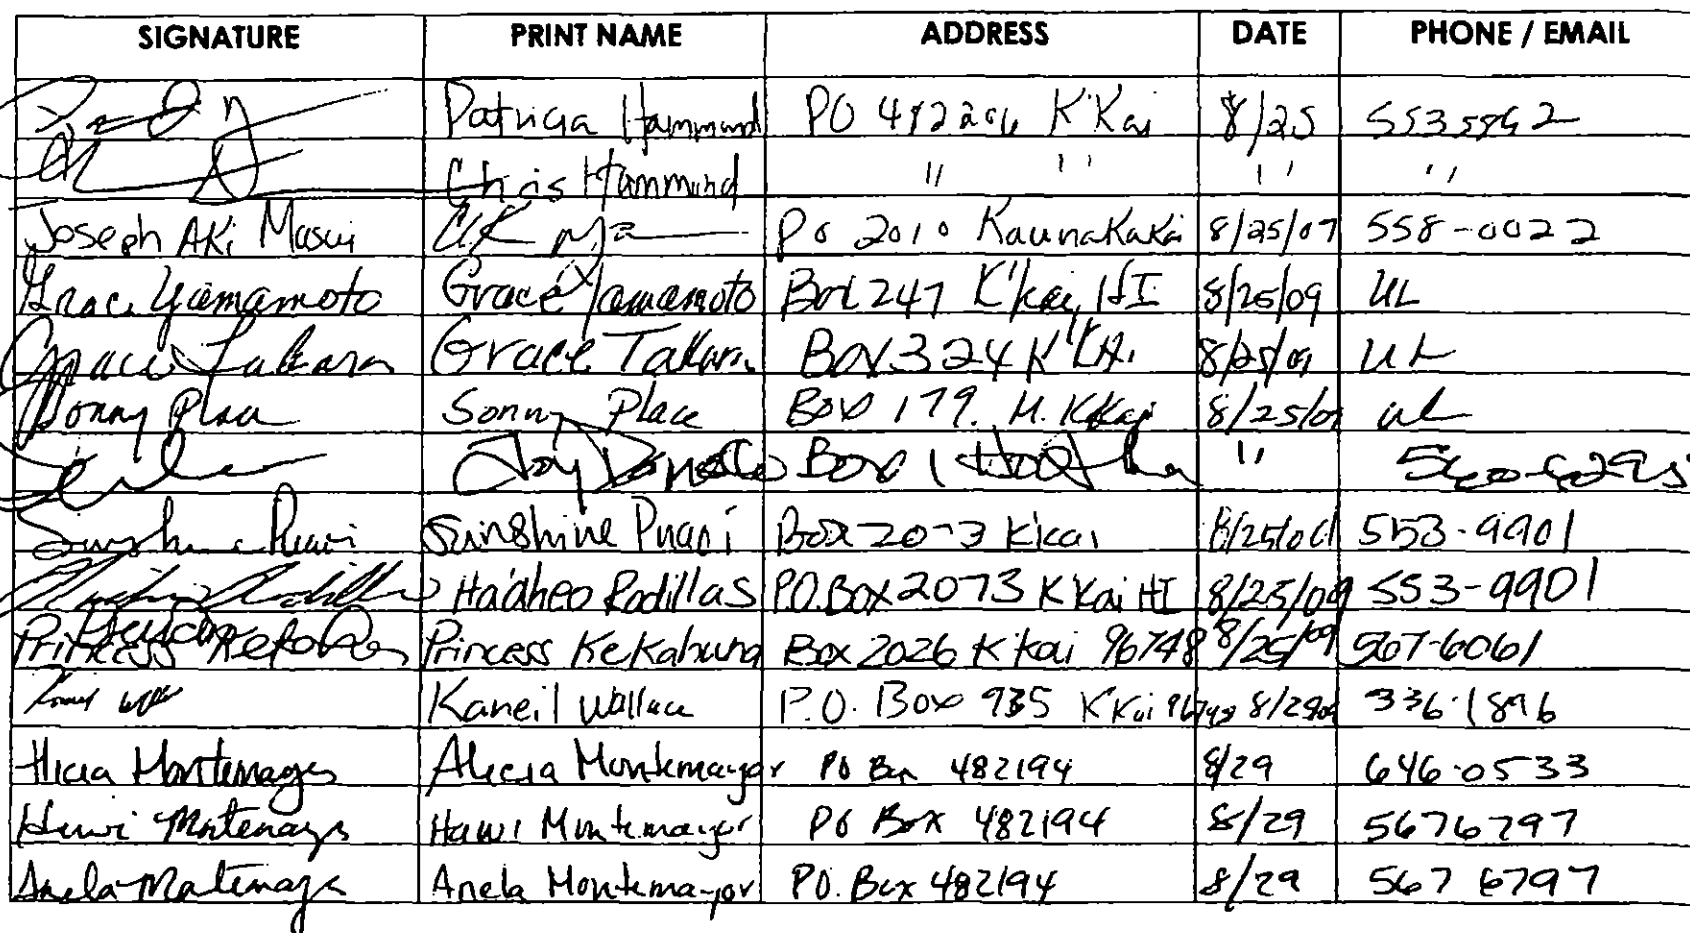 SIGNATURE PRINT NAME ADDRESS DATE PHONE / EMAIL
Patricia Hammond PO 482206 K'Kai 8/25 5535562
Chris Hammond " " " "
Joseph Aki Masui PO 2010 Kaunakakai 8/25/09 558-0022
Grace Yamamoto Grace Yamamoto Box 247 K'kai, HI 8/25/09 UL
Grace Takara Grace Takara Box 324 K'Kai 8/25/09 UL
Sonny Place Sonny Place Box 179. K'Kai 8/25/09 UL
Joy Box 1 Ho'olehua " 560-6295
Sunshine Puaoi Sunshine Puaoi Box 2073 K'kai 8/25/09 553-9901
Ha'aheo Rodillas P.O. Box 2073 K'Kai HI 8/25/09 553-9901
Princess Kekahuna Box 2026 K'kai 96748 8/25/09 567-6061
Kaneil Wallace P.O. Box 935 K'Kai 96748 8/29/09 336-1896
Alicia Montemayor Alicia Montemayor PO Box 482194 8/29 646-0533
Hawi Montemayor Hawi Montemayor PO Box 482194 8/29 5676797
Anela Montemayor Anela Montemayor P.O. Box 482194 8/29 567 6797